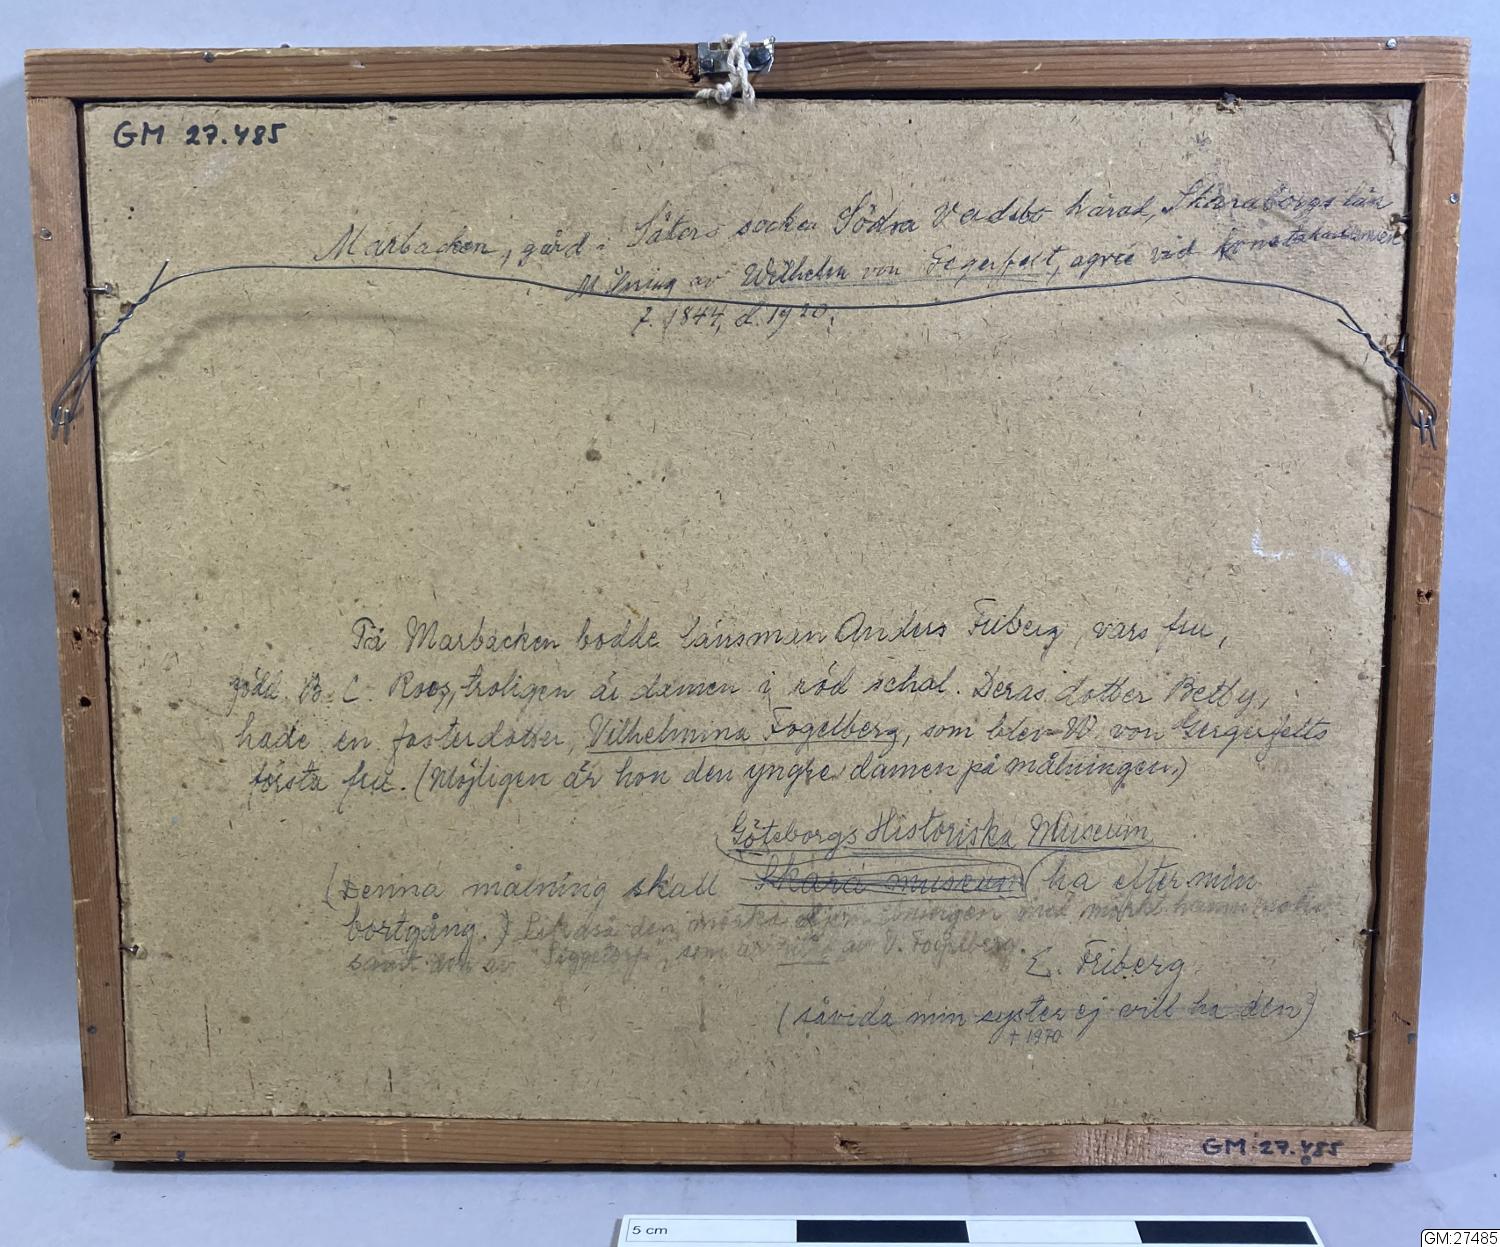 GM 27.485
Marbäcken, gård i Säters socken Södra Vadsbo härad, Skaraborgs län
Målning av Wilhelm von Gegerfelt, agrée vid konstakademien
f. 1844, d. 1920.
På Marbäcken bodde länsman Anders Friberg, vars fru,
född B. C. Roos, troligen är damen i röd schal. Deras dotter Betty,
hade en fosterdotter, Vilhelmina Fogelberg, som blev W. von Gergerfelts
första fru. (Möjligen är hon den yngre damen på målningen.)
Göteborgs Historiska Museum
(Denna målning skall Skara museum ha efter min
bortgång.) Likaså den mörka med mörkt
samt den av "Siggetorp", som är av V. Fogelberg.
E. Friberg
(såvida min syster ej vill ha den)
† 1970
GM 27.485
5 cm
GM:27485